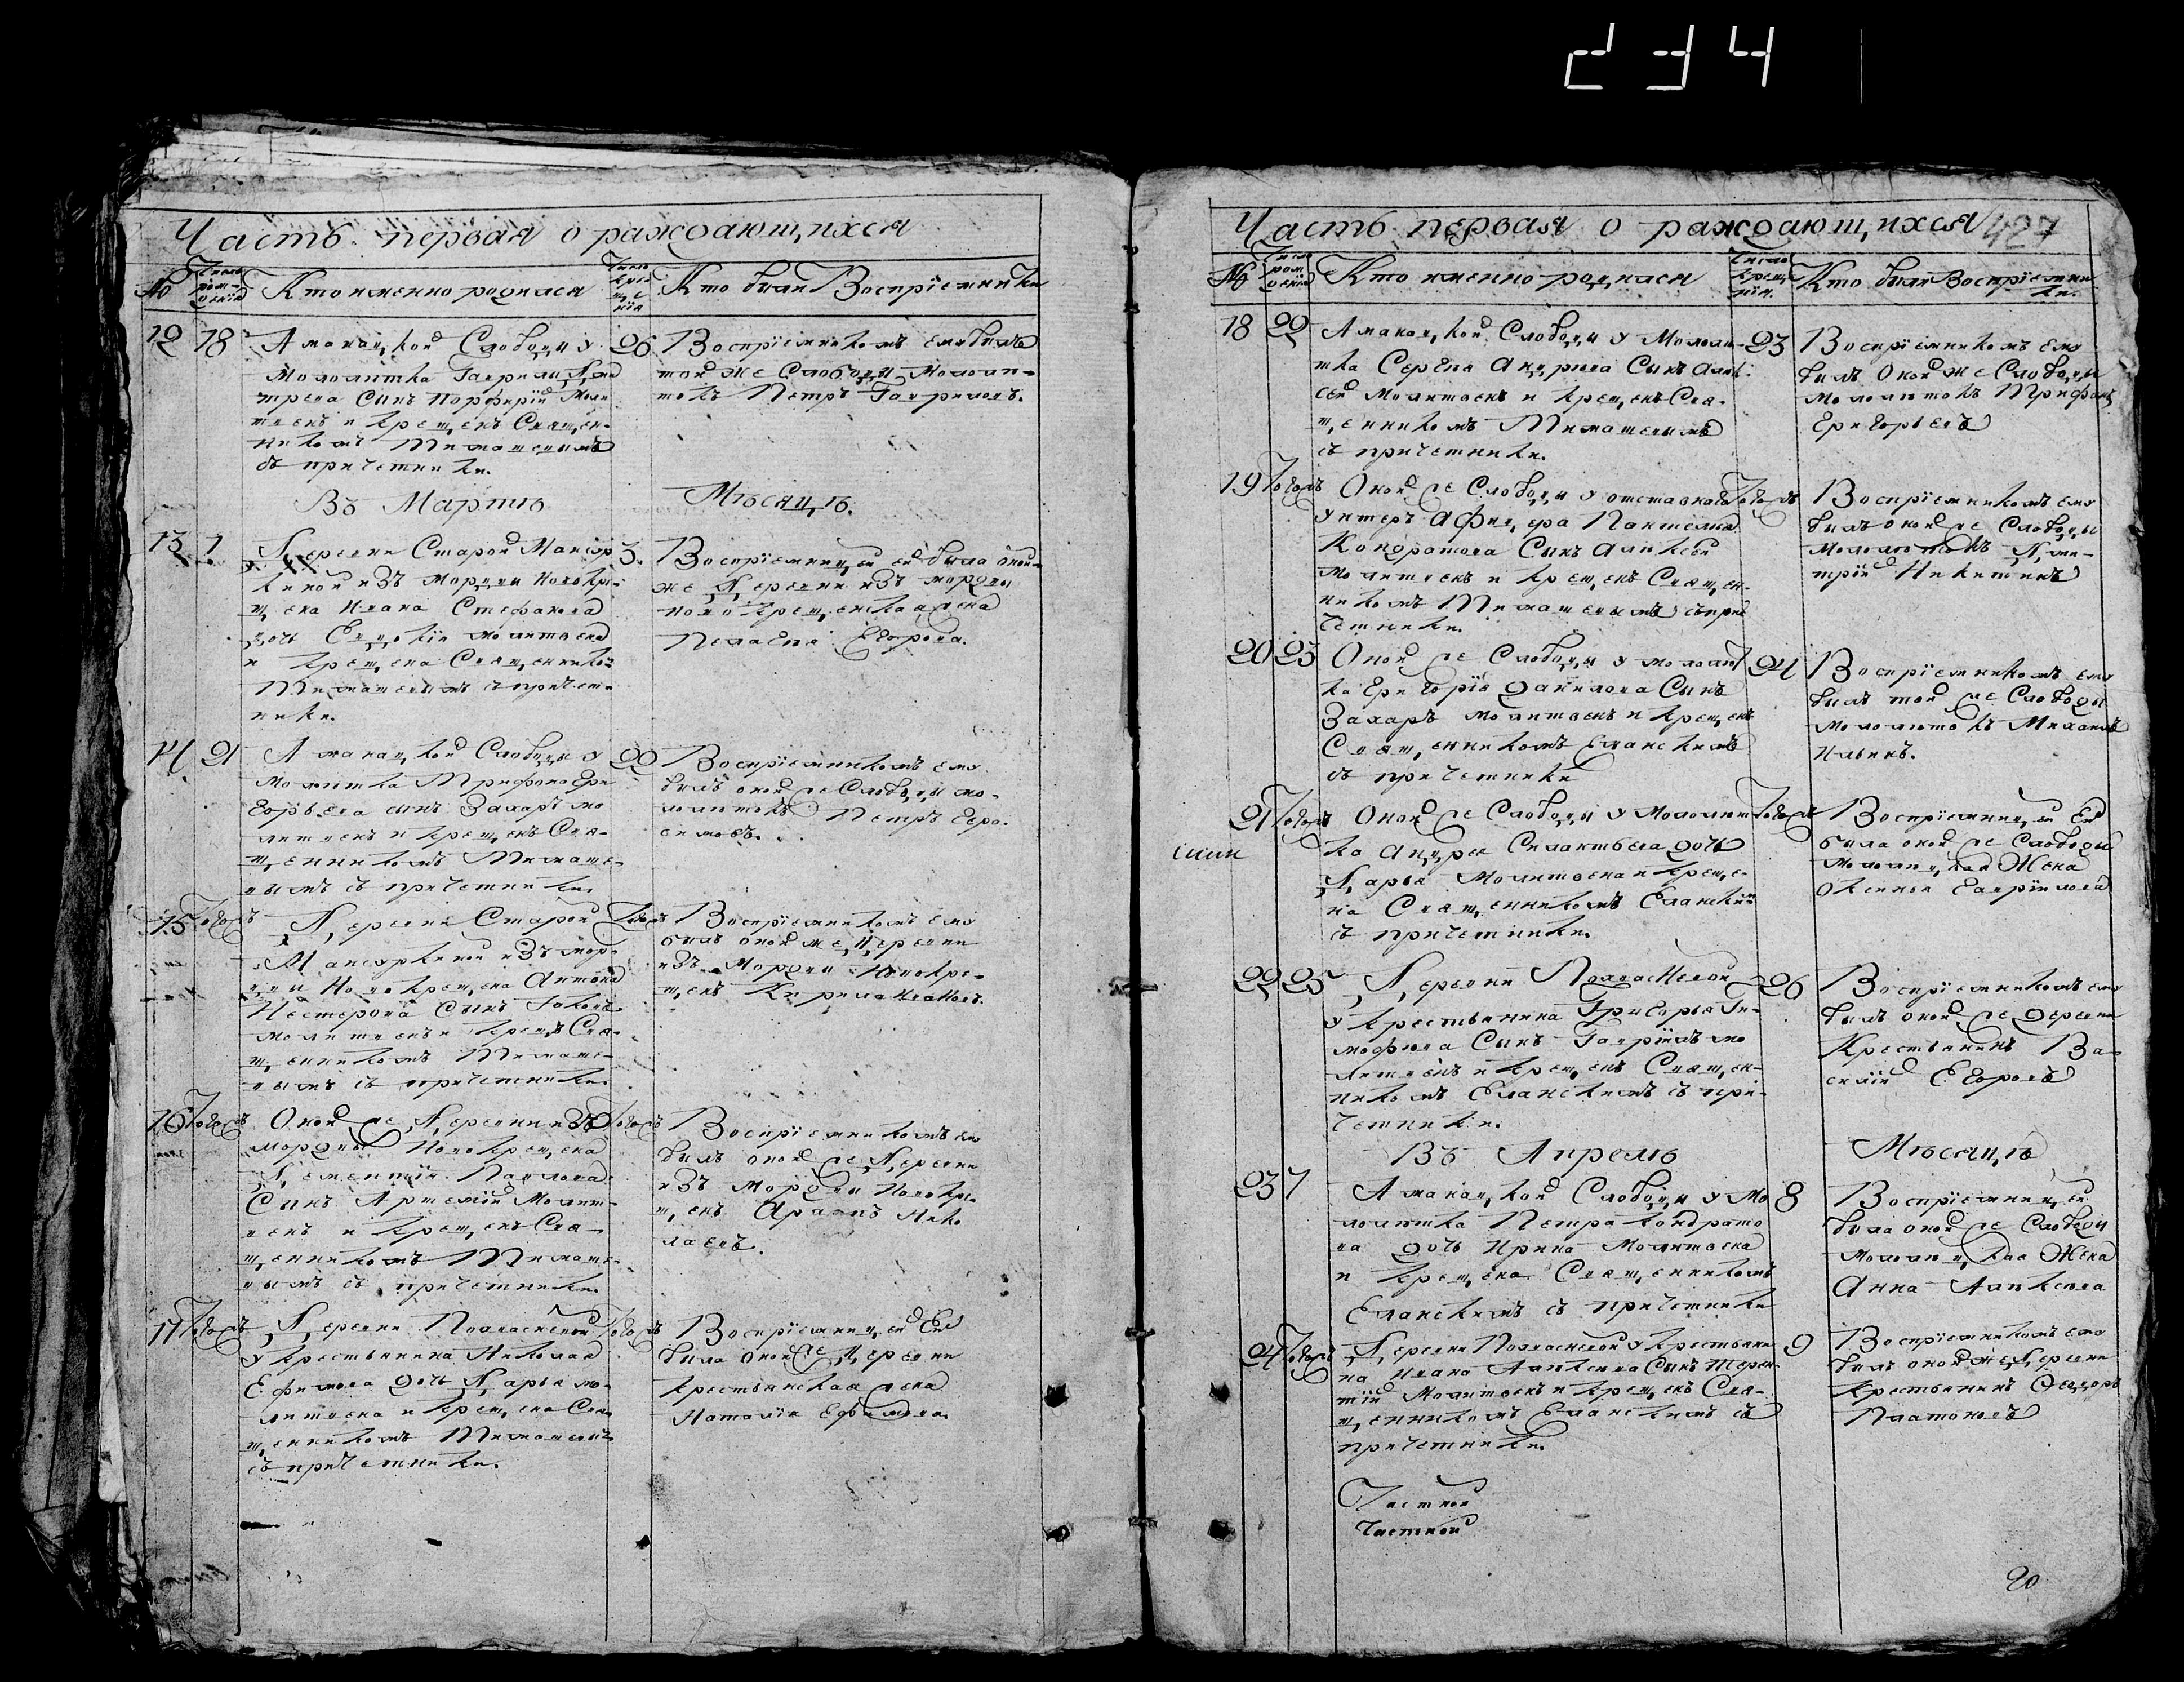 234
Часть первая о раждающихся
№
Число рождения
Кто именно родился
Число крещения
Кто были Восприемники
12 18 Аманацкой Слободы у 26 Восприемникомъ ему былъ
Молоитка Гаврилы Дми
трева Сынъ Порфирий Моли
твенъ и крещенъ Священ-
никомъ Тимашевымъ
съ причетники.
той же Слободы Молои-
токъ Петръ Гавриловъ.
Въ Мартѣ Мѣсяцѣ.
13 1 Деревни Старой Мансур 3.
киной изъ мордвы Новокре-
щена Ивана Стефанова
дочь Евдокия молитвена
и крещена Священнико
Тимашевымъ съ причет-
ники.
Восприемницей ей была оной
же Деревни изъ мордвы
новокрещенская жена
Пелагея Егорова.
14 21 Аманацкой Слободы у 22
Молоитка Трифона Гри
горьева сынъ Захаръ мо
литвенъ и крещенъ Свя-
щенникомъ Тимаше-
вымъ съ причетники.
Восприемникомъ ему
былъ оной же Слободы мо-
лоитокъ Петръ Гера-
симовъ.
15 Тогожъ Деревни Старой Тогожъ
Мансуркиной изъ мор-
двы Новокрещена Антона
Нестерова Сынъ Иаковъ
молитвенъ и крещенъ Свя-
щенникомъ Тимаше-
вымъ съ причетники.
Восприемникомъ ему
былъ оной же Деревни
изъ Мордвы Новокре-
щенъ Кирила Ивановъ.
16 Тогожъ Оной же Деревни изъ Тогожъ
мордвы Новокрещена
Дементия Павлова
Сынъ Артемий Молит-
венъ и крещенъ Свя-
щенникомъ Тимаше-
вымъ съ причетники.
Восприемникомъ ему
былъ оной же Деревни
изъ Мордвы Новокре-
щенъ Нико
лаевъ.
17 Тогожъ Деревни Тогожъ
у крестьянина Николая
Ефимова дочь Дарья мо-
литвена и крещена Свя-
щенникомъ Тимашевымъ
съ причетники.
Восприемницей Ей
была оной же Деревни
крестьянская жена
Наталия Ефимова.
Часть первая о раждающихся 427
№
Число рождения
Кто именно родился
Число крещения.
Кто были Восприемни
ки.
18 22 Аманацкой Слободы у Молои- 23
тка Сергея Андреева Сынъ Алек
сей Молитвенъ и крещенъ Свя-
щенникомъ Тимашевымъ
съ причетники.
Восприемникомъ Ему
былъ Оной же Слободы
молоитокъ Трифонъ
Григорьевъ
19 Тогожъ Оной же Слободы у отставного Тогожъ
унтеръ афицера Пантелея
Кондратова Сынъ Алексей
молитвенъ и крещенъ Священ-
никомъ Тимашевымъ съ при
четники.
Восприемникомъ ему
былъ оной же Слободы
молоитокъ Дми-
трий Никитинъ
20 23 Оной же Слободы у молоит 24
ка Григория Данилова Сынъ
Захаръ молитвенъ и крещенъ
Священникомъ Еланскимъ
съ причетники
Восприемникомъ ему
былъ той же Слободы
молоитокъ Михаилъ
Ильинъ.
21 Тогожъ Оной же Слободы у Молоит Тогожъ
ка Андрея Силантьева дочь
Дарья Молитвена и креще-
на Священникомъ Еланским
съ причетники.
Восприемницей Ей
была оной же Слободы
Жена
Гаврилова
22 25 Деревни 26
у крестьянина Григорья Ти-
мофеева Сынъ Гавриилъ мо
литвенъ и крещенъ Священ-
никомъ Еланскимъ съ при-
четники.
Восприемникомъ ему
былъ оной же деревни
Крестьянинъ Ва-
силий Егоровъ
Въ Апрелѣ Мѣсяцѣ
23 7 Аманацкой Слободы у Мо 8
лоитка Петра Кондрато
ва дочь Ирина Молитвена
и крещена Священникомъ
Еланскимъ съ причетники
Восприемницей
была оной же Слободы
Жена
Анна Алексеева
24 Тогожъ Деревни у крестьяни 9
на Ивана Алексеева Сынъ Терен-
тий Молитвенъ и крещенъ Свя-
щенникомъ Еланскимъ съ
причетники.
Восприемникомъ ему
былъ оной же Деревни
Крестьянинъ Федоръ
Платоновъ
Частной
Частной
20